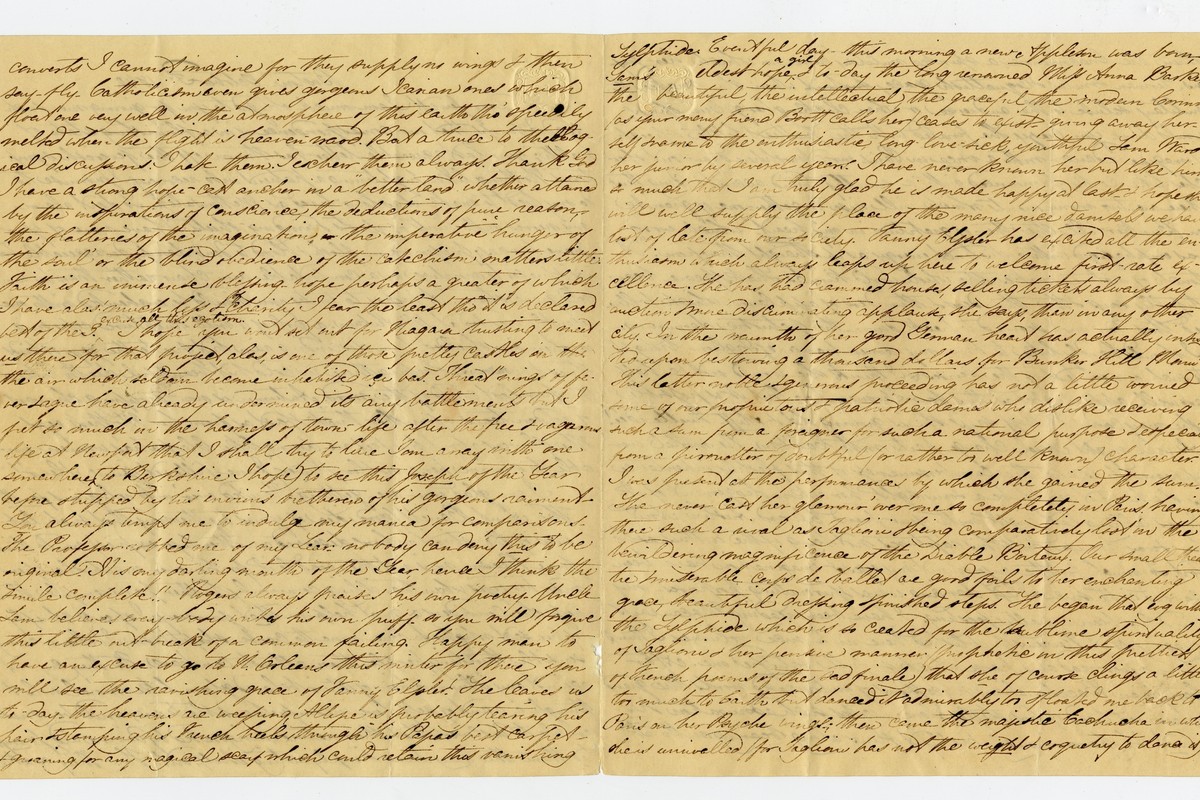 converts I cannot imagine for they supply no wings & then
say-fly. Catholicism even gives gorgeous Icarian ones which
float one very well in the atmosphere of this earth tho' speedily
melted when the flight is heavenward. But a truce to theolog-
ical discussions. I hate them. I eschew them always. Thank God
I have a strong hope-cast anchor in a "better land" whether attained
by the inspirations of conscience, the deductions of pure reason,
the flatteries of the imagination, or the imperative hunger of
the soul or the blind obedience of the catechism matters little.
Faith is an immense blessing, hope perhaps a greater of which
I have alas much less & Charity I fear the least tho' it is declared
best of the 3. excuse all this egotism. I hope you wont set out for Niagara trusting to meet
us there for that project, alas, is one of those pretty castles in the
the air which seldom become inhabited ici bas. Threat'nings of fe-
ver & ague have already undermined its airy battlements but I
fret so much in the harness of town life after the free & vagarious
life at Newport that I shall try to live I'm away with one
somewhere, to Berkshire I hope, to see this Joseph of the Year
before stripped by his envious brethren of his gorgeous raiment
You always tempt me to indulge my mania for comparisons.
The Professor robbed me of my Lear nobody can deny this to be
original. It is my darling month of the Year hence I think the
simile complete. "Rogers always praises his own poetry. Uncle
Sam believes every body writes his own puff. so you will forgive
this little outbreak of a common failing. Happy man to
have an excuse to go to N. Orleans this winter for there you
will see the vanishing grace of Fanny Elsler. She leaves us
to-day. the heavens are weeping & is probably tearing his
hair & stamping his French heels through his Papa's best carpet
& groaning for any magical scarf which could retain this vanishing
Sylphide. Eventful day - this morning a new Appleton was born
Sam's dearest hope, a girl & to-day the long renowned Miss Anna Barker
the beautiful the intellectual the graceful the modern Corinne
as your merry friend Bartt calls her, ceases to exist giving away her
self & name to the enthusiastic long-love-sick, youthful Sam Ward
her junior by several years. I have never known her but like him
so much that I am truly glad he is made happy at last & hope she
will well supply the place of the many nice damsels we have
lost of late from our society. Fanny Elssler has excited all the en-
thusiasm which always leaps up here to welcome first-rate ex-
cellence. She has had crammed houses selling tickets always by
auction & more discriminating applause, she says, than in any other
city. In the warmth of her good German heart has actually insis-
ted upon bestowing a thousand dollars for Bunker Hill Monu
This latter noble & generous proceeding has not a little worried
some of our & patriotic dames who dislike receiving
such a sum from a foreigner for such a national purpose & especially
from a of doubtful (or rather too well known) character.
I was present at the performances by which she gained the sum.
She never cast her glamour over me so completely in Paris. having
there such a rival as Taglioni & being comparatively lost in the
bewildering magnificence of the Diable Boiteux. Our small
the miserable corps de ballet are good foils to her enchanting
grace, beautiful dressing & finished steps. She began that evening
the Sylphide which is so created for the sublime spirituality
of Taglioni & her pensive manner (prophetic in this prettiest
of French poems of the sad finale) that she of course clings a little
too much to earth but danced it admirably & floated me back to
Paris on her Psyche wings. then came the majestic Cachucha in which
she is unrivalled (for Taglioni has not the weight & coquetry to dance it